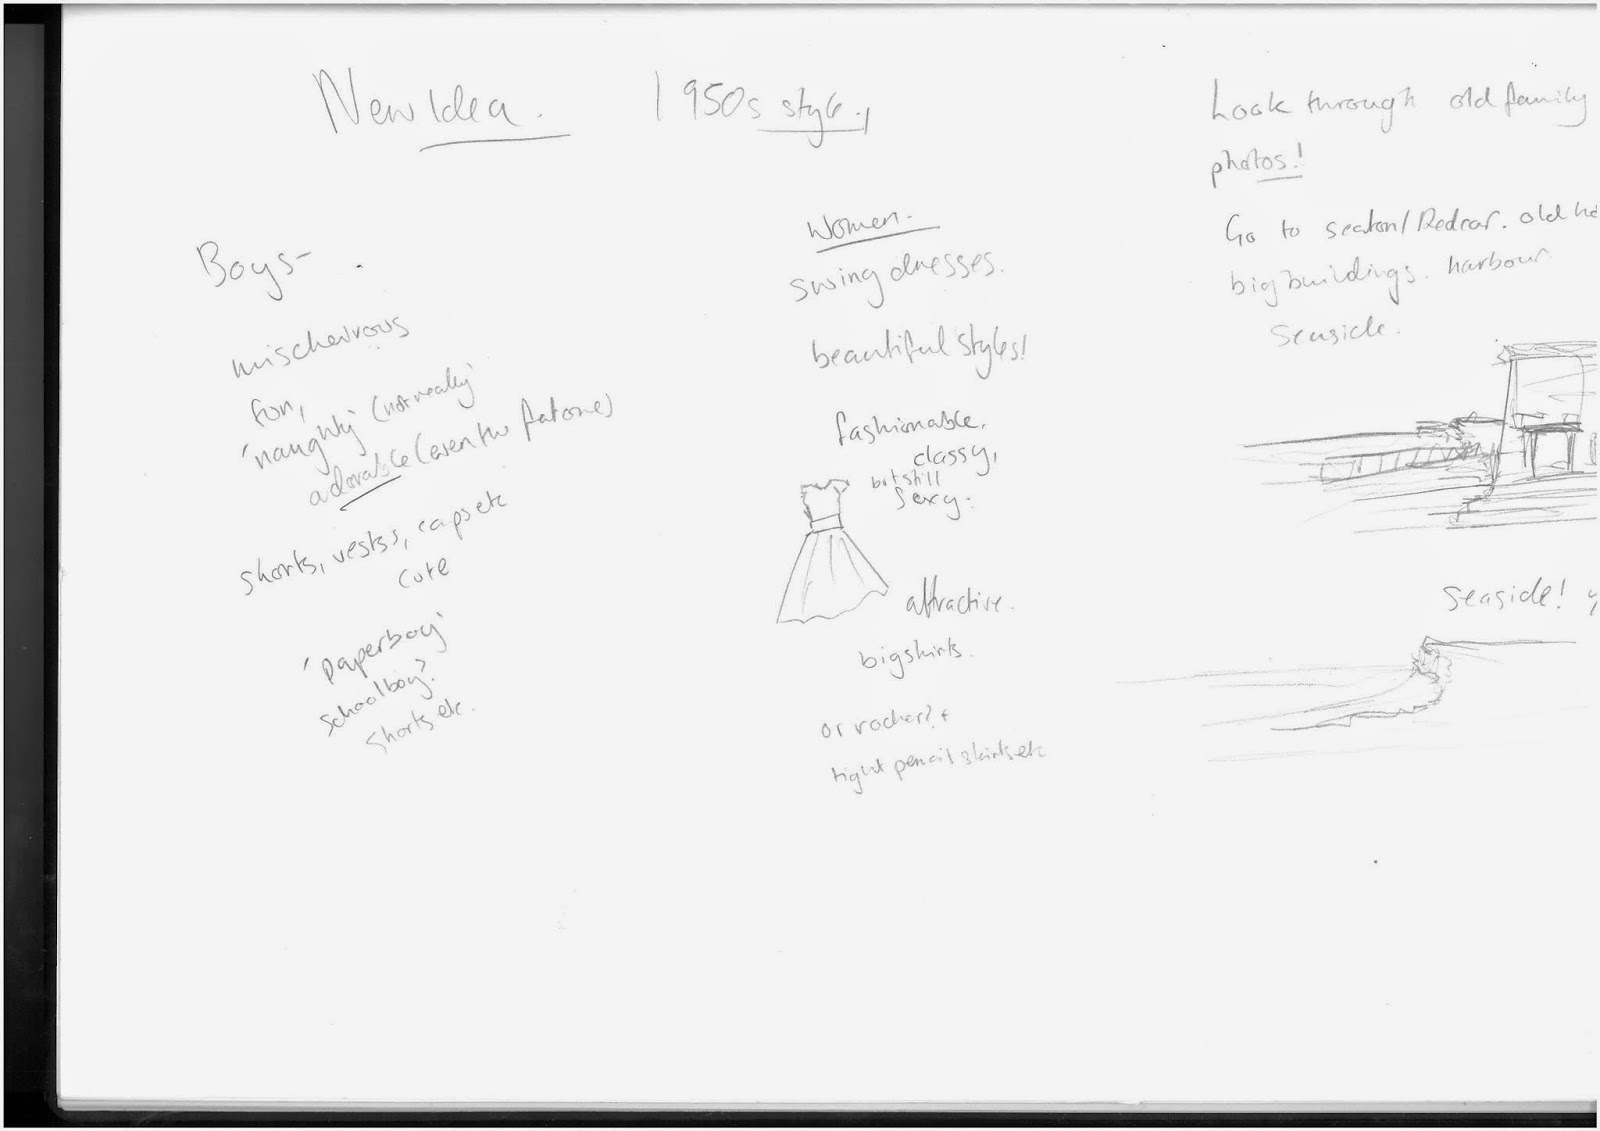 New Idea.
1950s style.,
Boys-
mischeivrous
fun,
'naughty' (not really)
adorable (even the fat one)
shorts, vests, caps etc
cute
'paperboy'
schoolboy?
shorts etc.
Women.
swing dresses.
beautiful styles!
fashionable,
classy,
but still
sexy.
attractive.
big skirts.
or
tight pencil skirts etc
Look through old family
photos!
Go to seaton/Redcar. old
big buildings. harbour
seaside.
Seaside!